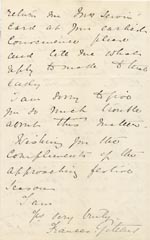 return me Mrs
card at your earliest
convenience please
and tell me what
reply to make to the
lady
I am sorry to give
you so much trouble
about this matter
Wishing you the
Compliments of the
approaching festive
Season
I am
Yrs very truly
Frances